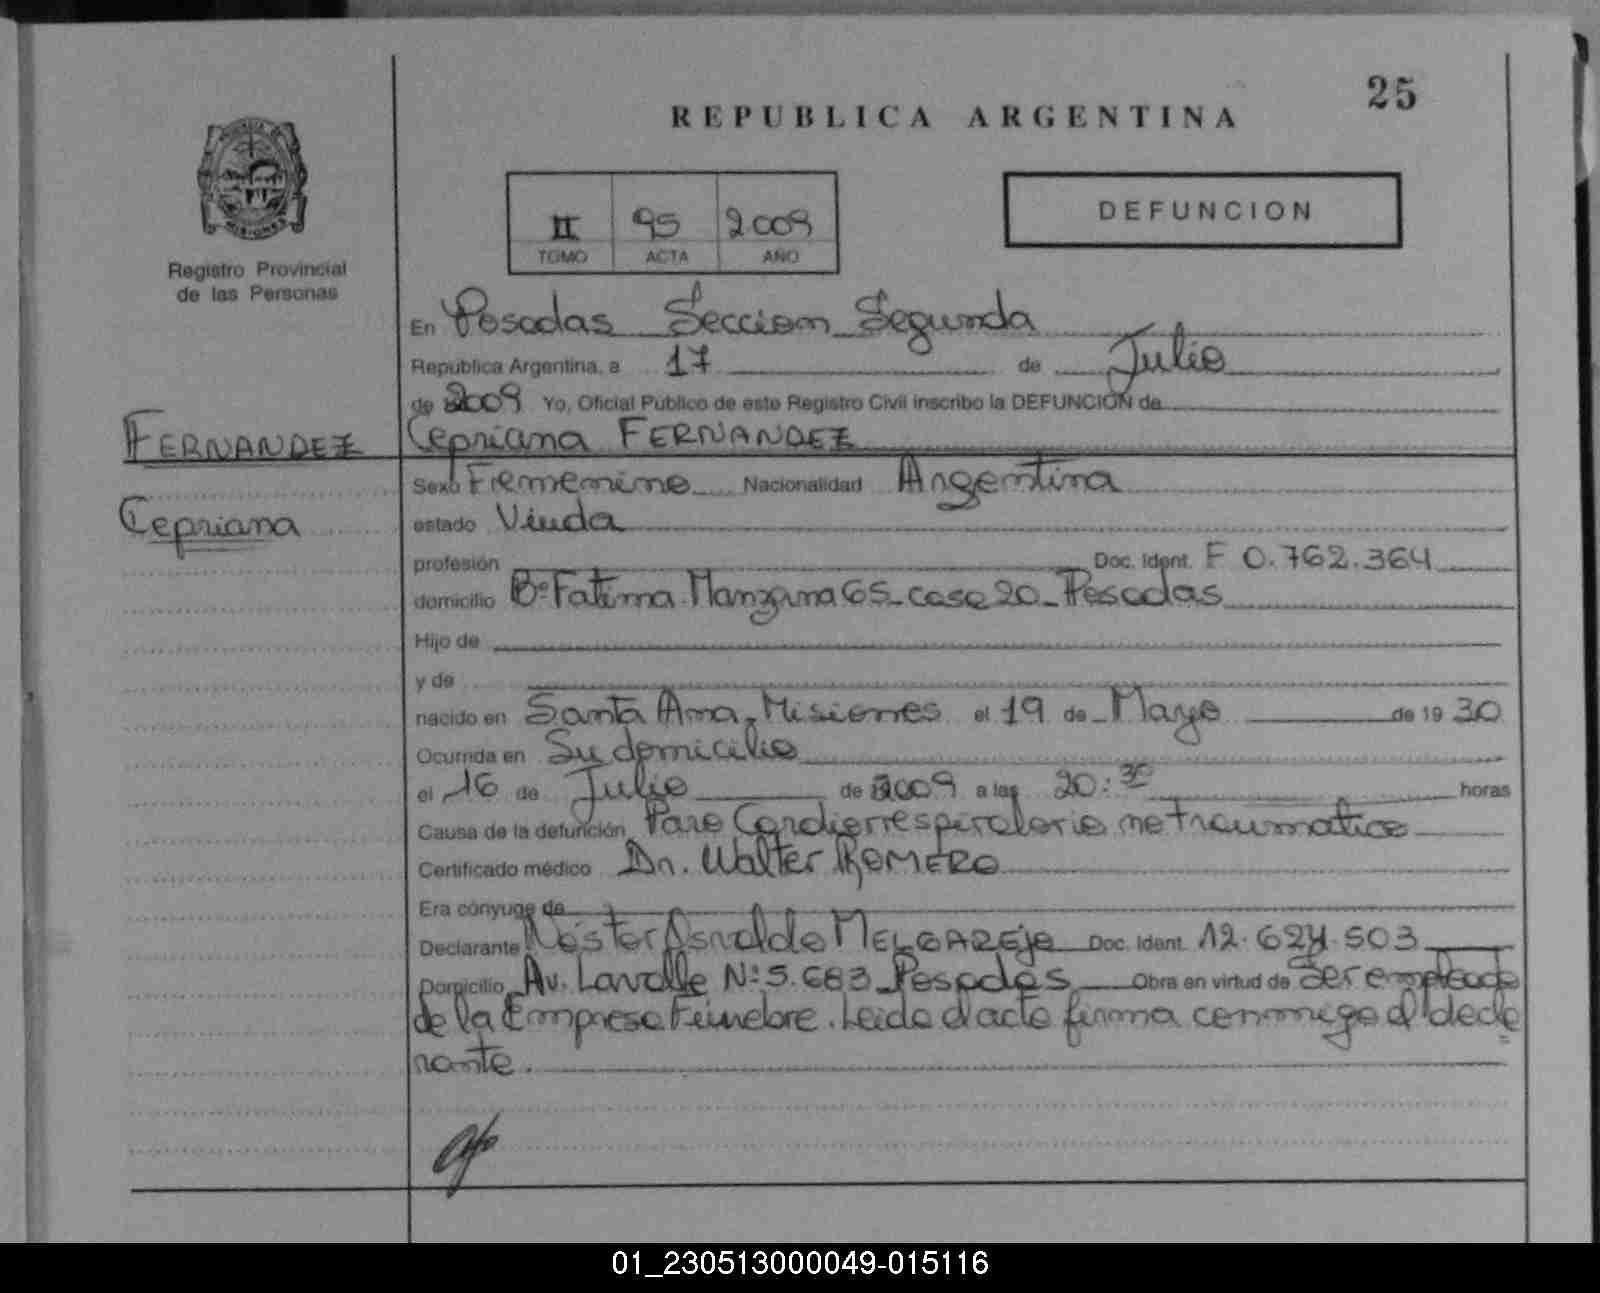 25
REPUBLICA ARGENTINA
PROVINCIA DE
MISIONES
Registro Provincial
de las Personas
II 95 2009
TOMO ACTA AÑO
DEFUNCION
En Posadas Seccion Segunda
República Argentina, a 17 de Julio
de 2009 Yo, Oficial Público de este Registro Civil inscribo la DEFUNCION de
FERNANDEZ
Cepriana FERNANDEZ
Sexo Femenino Nacionalidad Argentina
Cepriana
estado Viuda
profesión Doc. Ident. F 0.762.364
domicilio Bº Fatima Manzana 65 casa 20 Posadas
Hijo de
y de
nacido en Santa Ana, Misiones el 19 de Mayo de 19 30
Ocurrida en Su domicilio
el 16 de Julio de 2009 a las 20:30 horas
Causa de la defunción Paro Cardiorrespiratorio no traumatico
Certificado médico Dr. Walter ROMERO
Era cónyuge de
Declarante Néstor Osvaldo MELGAREJO Doc. Ident. 12.624.503
Domicilio Av. Lavalle Nº 5.683 Posadas Obra en virtud de Ser empleado
de la Empresa Fúnebre. Leida el acta firma conmigo el decla
rante.
01_230513000049-015116